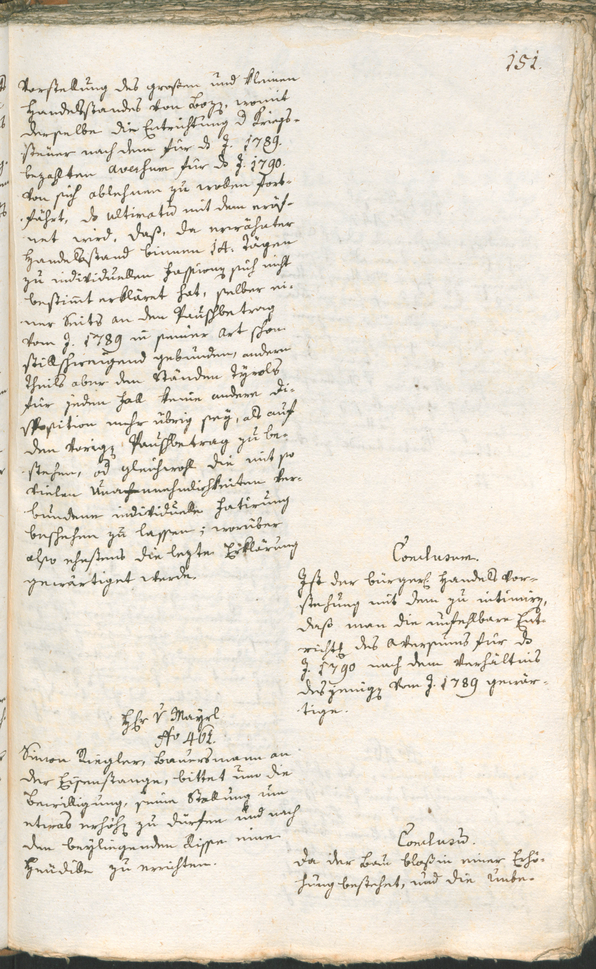 151.
Vorstellung des großen und kleinen
Handelsstandes von Boz̄, womit
derselbe die Entrichtung d Kriegs-
steuer nach dem für ds J. 1789.
bezahlten Aversum für ds J. 1790.
von sich ablehnen zu wollen fort-
fährt, ds ultimatū mit dem eröf-
net wird, daß, da erwähnter
Handelsstand binnen 14. Tägen
zu individuellen Fassionen sich nicht
bestimt erkläret hat, selber ei-
ner Seits an den Pauschbetrag
vom J. 1789 in seiner Art schon
stillschweigend gebunden, andern
Theils aber den Ständen Tyrols
für jeden Fall keine andere Di-
sposition mehr übrig sey, als auf
den vorigen Pauschbetrag zu be-
stehen, od gleichwohl die mit so
vielen Unannehmlichkeiten ver-
bundene individuelle Fatirung
beschehen zu lassen; worüber
also ehestens die lezte Erklärung
gewärtiget werde.
Conclusum.
Ist der bürgerl Handels Vor-
stehung mit dem zu intimiren,
daß man die unfehlbare Ent-
richtg des Aversums für ds
J. 1790 nach dem Verhältnis
desjenigen vom J. 1789 gewär-
tige.
Hr v Mayrl
No 461.
Simon Riegler, Bauersmann an
der Eisenstange, bittet um die
Bewilligung, seine Stallung um
etwas erhöhen zu dürfen und nach
dem beyliegenden Risse eine
Heudille zu errichten.
Conclusū.
Da der Bau blos in einer Erhö-
hung bestehet, und die Unbe-